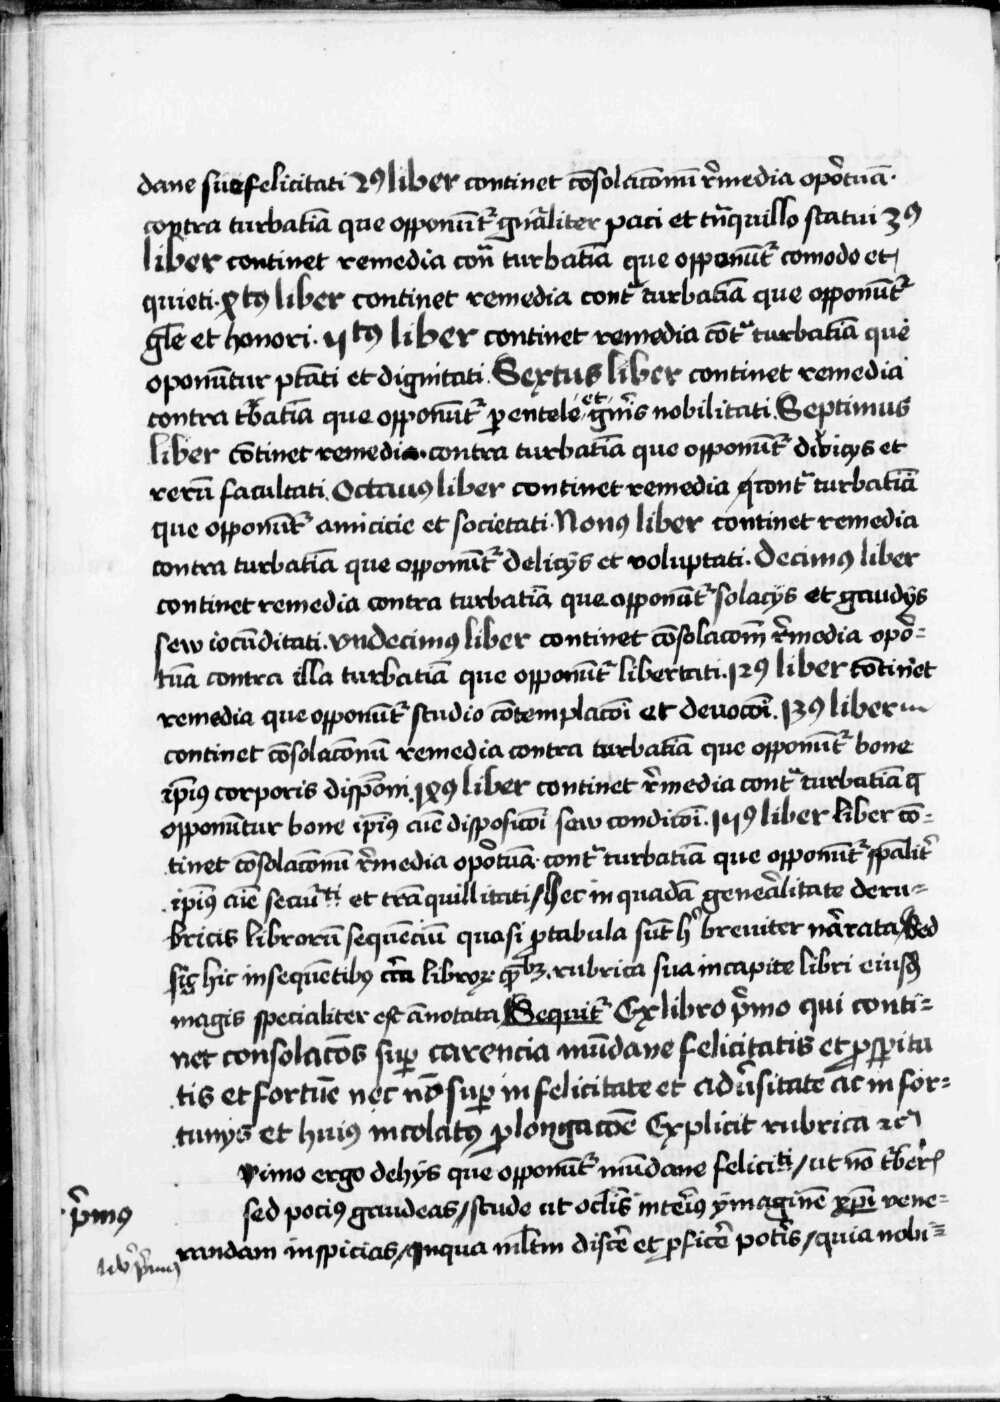 dane sue felicitati 2ꝰ liber continet cōsolacionū r̄media opōtuā·
contra turbatiā que opponūt᷑ gn̄aliter paci et tn̄quillo statui 3ꝰ
liber continet remedia con̄ turbatiā que opponūt᷑ comodo et
quieti· 4tꝰ liber continet remedia contᷓ turbatiā que opponūt᷑
gl̄e et honori· 5tꝰ liber continet remedia cōtᷓ turbatiā que
oponūtur ptāti et dignitati. Sextus liber continet remedia
contra tᷣbatiā que opponūt᷑ ꝑentele et gn̄is nobilitati. Septimus
liber cōtinet remedia contra turbatiā que opponūt᷑ diuicijs et
rerū facultati. Octauꝰ liber continet remedia contᷓ turbatiā
que opponūt᷑ amicicie et societati· Nonꝰ liber continet remedia
contra turbatiā que opponūt᷑ delicijs et voluptati. Decimꝰ liber
continet remedia contra turbatiā que opponūt᷑ solacijs et gaudijs
sew iocūditati. vndecimꝰ liber continet cōsolacionū r̄media opō-
tuā contra illa turbatiā que opponūt᷑ libertati. 12ꝰ liber cōtinet
remedia que opponūt᷑ studio cōtemplacōi et deuocōi. 13ꝰ liber
continet cōsolacōnū remedia contra turbatiā que opponūt᷑ bone
ip̄iꝰ corporis disp̄oni. 14ꝰ liber continet r̄media contᷓ turbatiā q̄
opponūtur bone ip̄iꝰ aīe disposicōi sew condicōi. 15ꝰ liber liber cō-
tinet cōsolacōnū r̄media opōtuā· contᷓ turbatiā que opponūt᷑ sp̄alit᷑
ip̄iꝰ aīe securiti et trāquillitati / Hec in quadā gen̄alitate de ru-
bricis librorū sequēciū quasi ꝓ tabula sūt hͨ breuiter nārata / Sed
sic hic in sequētibꝰ cͥca libroꝝ rubrica sua in capite libri eiusdē
magis specialiter est ānotata Sequit᷑ Ex libro p̄mo qui conti-
net consolacōes suꝑ carencia mūdane felicitatis et ꝓsꝑita
tis et fortūe nec nō suꝑ infelicitate et aduersitate ac infor-
tunijs et huiꝰ incolatꝰ ꝓlongacōe Explicit rubrica ⁊c
rimo ergo de hijs que opponūt᷑ mūdane feliciti / ut nō tᷣberis
sed pociꝰ gaudeas / stude ut oclis int̄iꝰ ymaginē xp̄i vene-
randam inspicias / in qua ml̄tm discē et ꝓficē potis / quia nobi-
p̄mꝰ